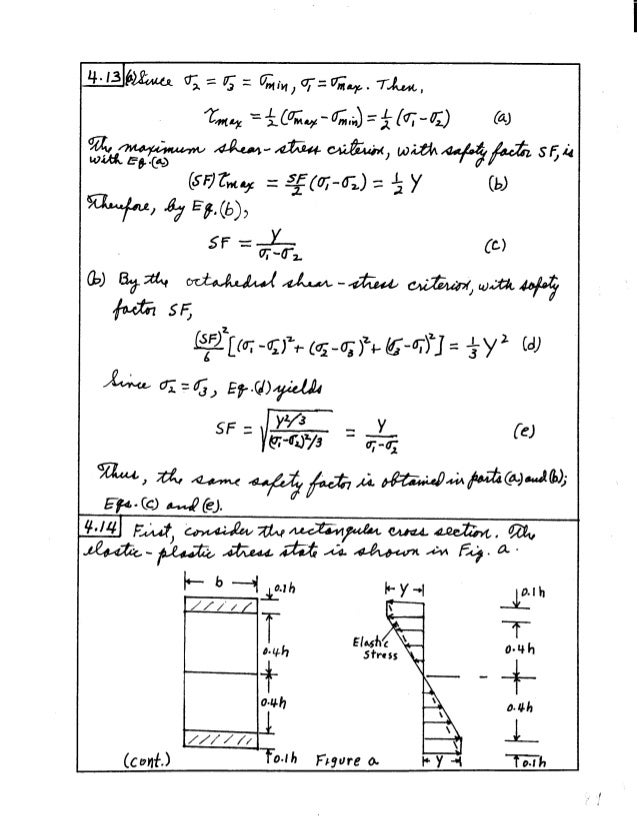 4.13 (a) Since σ₂ = σ₃ = σmin, σ₁ = σmax. Then,
τmax = ½(σmax - σmin) = ½(σ₁ - σ₂) (a)
The maximum shear-stress criterion, with safety factor SF, is
with Eq.(a)
(SF)τmax = SF/2 (σ₁ - σ₂) = ½ Y (b)
Therefore, by Eq.(b),
SF = Y/(σ₁ - σ₂) (c)
(b) By the octahedral shear-stress criterion, with safety
factor SF,
(SF)²/6 [(σ₁ - σ₂)² + (σ₂ - σ₃)² + (σ₃ - σ₁)²] = ⅓ Y² (d)
Since σ₂ = σ₃, Eq.(d) yields
SF = √((Y²/3)/((σ₁ - σ₂)²/3)) = Y/(σ₁ - σ₂) (e)
Thus, the same safety factor is obtained in parts (a) and (b);
Eqs. (c) and (e).
4.14 First, consider the rectangular cross section. The
elastic-plastic stress state is shown in Fig. a.
b 0.1h Y 0.1h
Elastic
Stress
0.4h 0.4h
0.4h 0.4h
(cont.) 0.1h Figure a Y 0.1h